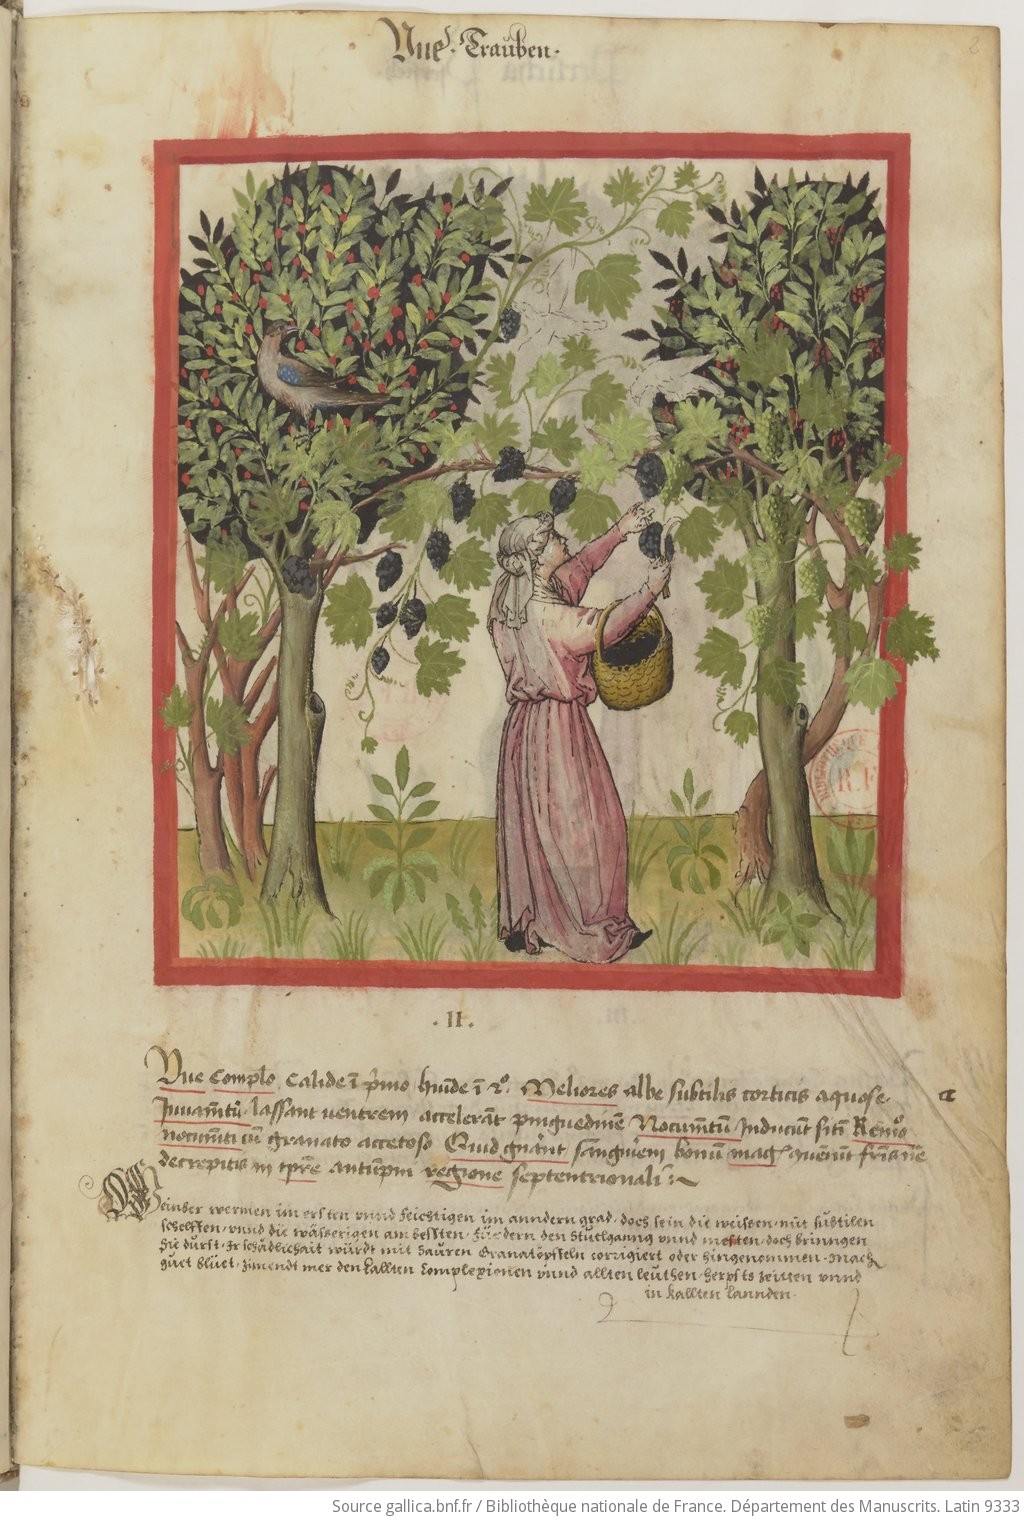 Vue. Trauben.
2
.II.
Vue Complo calide ī p̄mo hūide ī 2º. Meliores albe subtilis corticis aquose.
Juuam̄tū. lassant uentrem accelerāt pinguedinē Nocum̄tū Inducūt sitī Remo
nocum̄ti cū granato accetoso Quid gn̄ant sanguinem bonū mag quēnūt fris nē
decrepitis in tpr̄e antiūpni regione septentrionali
Weinber wermen im ersten vnnd feichtigen im anndern grad. doch sein die weissen. mit subtilen
schelffen. vnnd die wässerigen am bessten. Fürdern den Stuelganng vnnd messten. doch bringen
Sie durst. Ir schädlichait würdt mit Sauren Granatöpffeln corrigiert oder hingenommen. Mach
guet bluet. Zimendt mer den kallten Complexionen vnnd allten leuthen. herpsts zeitten vnnd
in kallten lannden.
BIBLIOTHEQUE
R.F.
Source gallica.bnf.fr / Bibliothèque nationale de France. Département des Manuscrits. Latin 9333